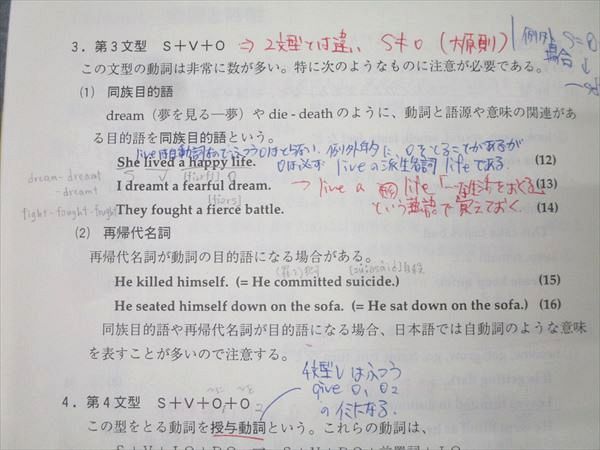 3．第3文型 S＋V＋O ⇒ 2文型とは違い S≠O (大原則) 例外 S=O
場合 ↓
この文型の動詞は非常に数が多い。特に次のようなものに注意が必要である。
(1) 同族目的語
dream（夢を見る―夢）や die - death のように、動詞と語源や意味の関連があ
る目的語を同族目的語という。
liveは自動詞なのでふつうOはとらない。例外的に、Oをとることがあるが
Oは必ず liveの派生名詞 lifeである。
She lived a happy life. (12)
S V O
dream - dreamt
- dreamt
I dreamt a fearful dream. (13)
→ live a life 「生活をおくる」
fight - fought - fought
[fiərs]
They fought a fierce battle. (14)
という熟語で覚えておく
(2) 再帰代名詞
再帰代名詞が動詞の目的語になる場合がある。
He killed himself. (= He committed suicide.) (15)
He seated himself down on the sofa. (= He sat down on the sofa.) (16)
同族目的語や再帰代名詞が目的語になる場合、日本語では自動詞のような意味
を表すことが多いので注意する。
4文型Vはふつう
give O₁ O₂
の イミになる.
4．第4文型 S＋V＋O＋O
この型をとる動詞を授与動詞という。これらの動詞は、